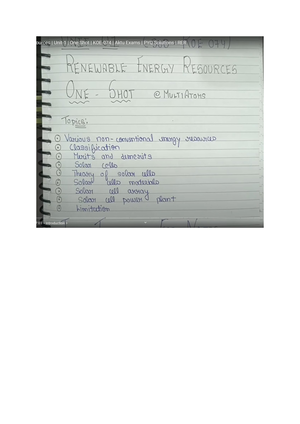 ources | Unit 1 | One Shot | KOE 074 | Aktu Exams | PYQ Solutions | RER
(KOE 074)
RENEWABLE ENERGY RESOURCES
ONE - SHOT @MULTIATOMS
Topics:
Various non-conventional energy resources
Classification
Merits and demerits
Solar cells
Theory of solar cells
Solar cells materials
Solar cell array
Solar cell power plant
Limitation